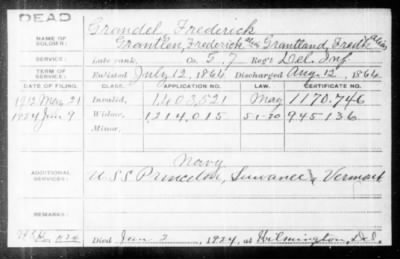 DEAD
NAME OF SOLDIER: Grandel, Frederick
Grantlen, Frederick Grantland, Fredk alias
SERVICE: Late rank, Co. 5, 7 Reg't Del. Inf
TERM OF SERVICE: Enlisted July 12, 1864 Discharged Aug. 12, 1864
DATE OF FILING. CLASS. APPLICATION NO. LAW. CERTIFICATE NO.
1912 May 21 Invalid, 1,403,521 May 1170.746
1924 Jan 9 Widow, 1,214,015 5-1-20 945136
Minor,
ADDITIONAL SERVICES: Navy
USS Princeton, Suwanee, Vermont
REMARKS:
Died Jan. 2, 1924, at Wilmington, Del.